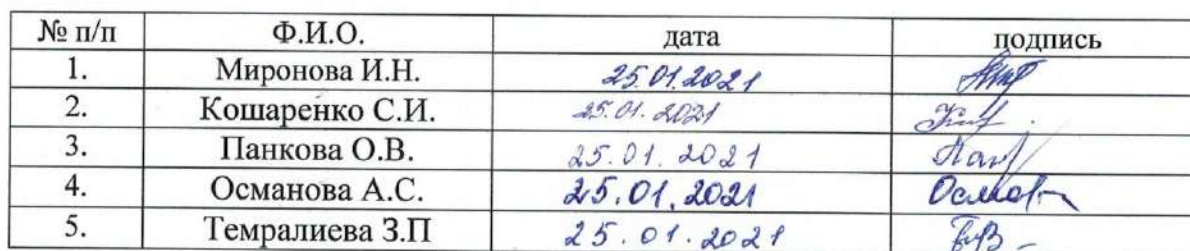 № п/п Ф.И.О. дата подпись
1. Миронова И.Н. 25.01.2021
2. Кошаренко С.И. 25.01.2021
3. Панкова О.В. 25.01.2021
4. Османова А.С. 25.01.2021
5. Темралиева З.П 25.01.2021